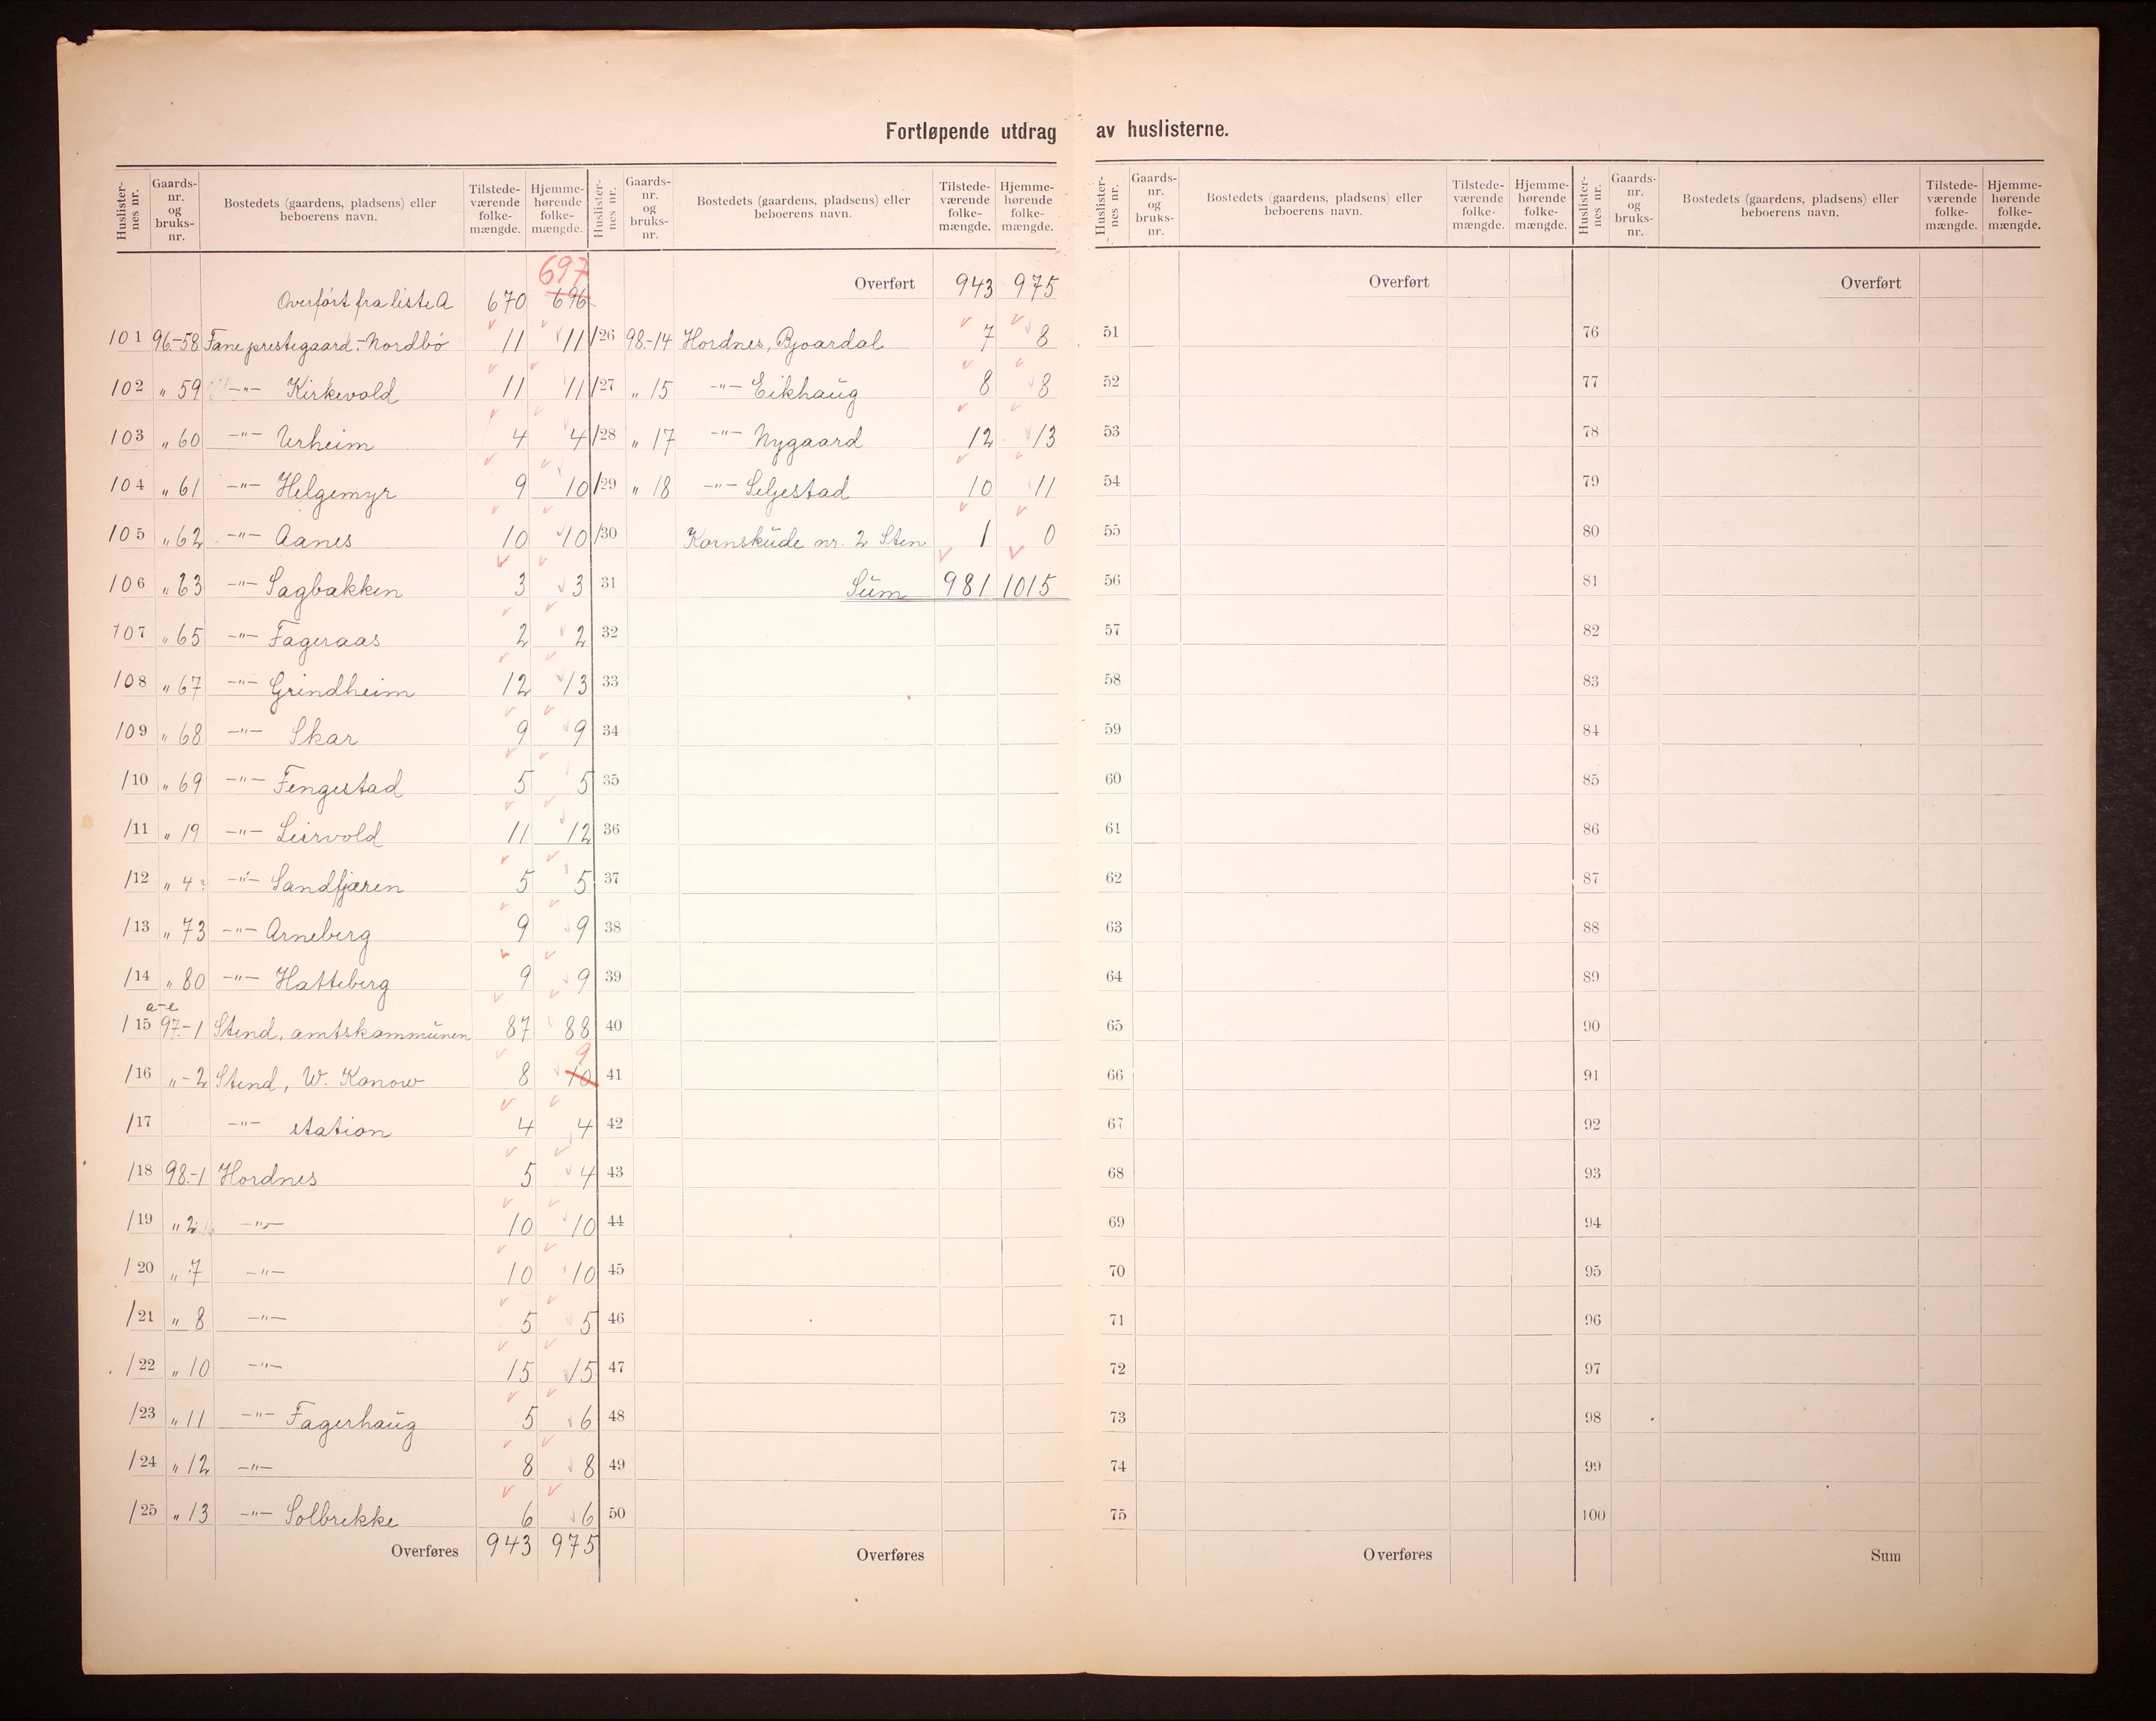 Fortløpende utdrag av huslisterne.
Huslister-nes nr. Gaards-nr. og bruks-nr. Bostedets (gaardens, pladsens) eller beboerens navn. Tilstede-værende folke-mængde. Hjemme-hørende folke-mængde.
697
Overført fra liste A 670 696
101 96-58 Fane prestegaard.-Nordbö 11 11
102 " 59 -"- Kirkevold 11 11
103 " 60 -"- Urheim 4 4
104 " 61 -"- Helgemyr 9 10
105 " 62 -"- Aanes 10 10
106 " 63 -"- Sagbakken 3 3
107 " 65 -"- Fageraas 2 2
108 " 67 -"- Grindheim 12 13
109 " 68 -"- Skar 9 9
110 " 69 -"- Fengestad 5 5
111 " 19 -"- Leirvold 11 12
112 " 4 -"- Sandfjæren 5 5
113 " 73 -"- Arneberg 9 9
114 " 80 -"- Hatteberg 9 9
a-e
115 97.-1 Stend, amtskommünen 87 88
9
116 "-2 Stend, W. Konow 8 10
117 -"- station 4 4
118 98.-1 Hordnes 5 4
119 " 2 -"- 10 10
120 " 7 -"- 10 10
121 " 8 -"- 5 5
122 " 10 -"- 15 15
123 " 11 -"- Fagerhaüg 5 6
124 " 12 -"- 8 8
125 " 13 -"- Solbrekke 6 6
Overføres 943 975
Huslister-nes nr. Gaards-nr. og bruks-nr. Bostedets (gaardens, pladsens) eller beboerens navn. Tilstede-værende folke-mængde. Hjemme-hørende folke-mængde.
Overført 943 975
126 98.-14 Hordnes, Bjoardal 7 8
127 " 15 -"- Eikhaüg 8 8
128 " 17 -"- Nygaard 12 13
129 " 18 -"- Seljestad 10 11
130 Kornsküde nr. 2 Sten 1 0
31 Süm 981 1015
32
33
34
35
36
37
38
39
40
41
42
43
44
45
46
47
48
49
50
Overføres
Huslister-nes nr. Gaards-nr. og bruks-nr. Bostedets (gaardens, pladsens) eller beboerens navn. Tilstede-værende folke-mængde. Hjemme-hørende folke-mængde.
Overført
51
52
53
54
55
56
57
58
59
60
61
62
63
64
65
66
67
68
69
70
71
72
73
74
75
Overføres
Huslister-nes nr. Gaards-nr. og bruks-nr. Bostedets (gaardens, pladsens) eller beboerens navn. Tilstede-værende folke-mængde. Hjemme-hørende folke-mængde.
Overført
76
77
78
79
80
81
82
83
84
85
86
87
88
89
90
91
92
93
94
95
96
97
98
99
100
Sum